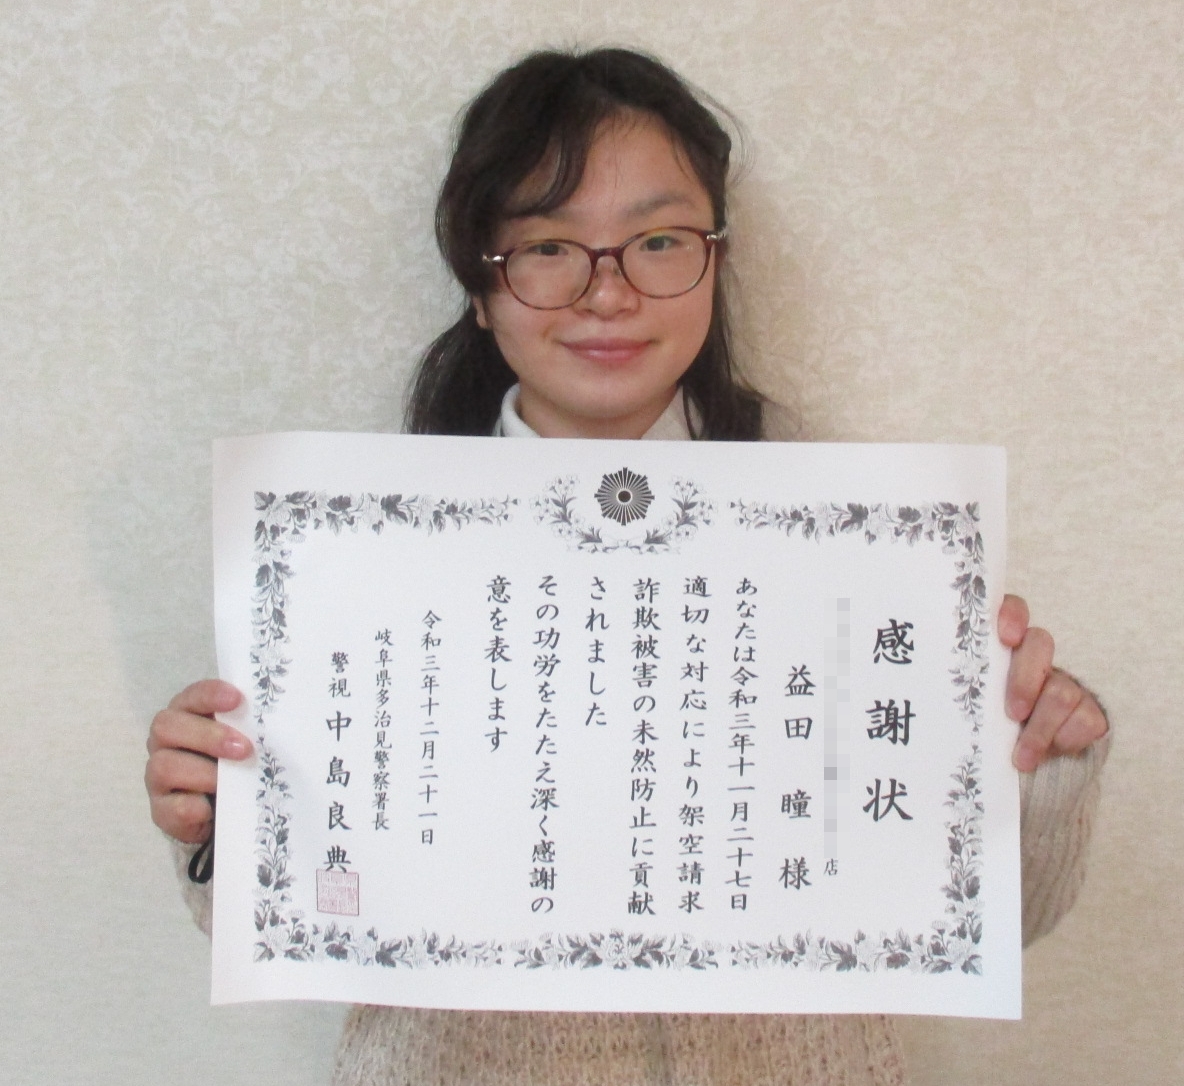 感謝状
店
益田 瞳 様
あなたは令和三年十一月二十七日
適切な対応により架空請求
詐欺被害の未然防止に貢献
されました
その功労をたたえ深く感謝の
意を表します
令和三年十二月二十一日
岐阜県多治見警察署長
警視 中島良典